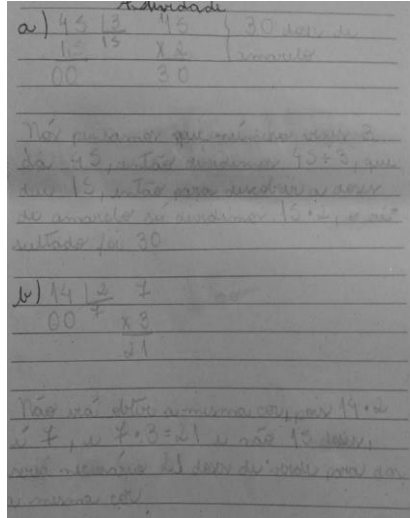 Atividade
a) 45 | 3 15 } 30 doses de
15 15 x 2 amarelo
00 30
Nós pensamos que vezes 3
dá 45, então dividimos 45÷3, que
15, então para descobrir a doses
de amarelo só 15•2, e
sultado foi 30
b) 14 | 2 7
00 7 x 3
21
Não irá obter a mesma cor, pois 14•2
é 7, e 7•3=21 e não 15 doses,
será necessário 21 doses de verde para dar
a mesma cor